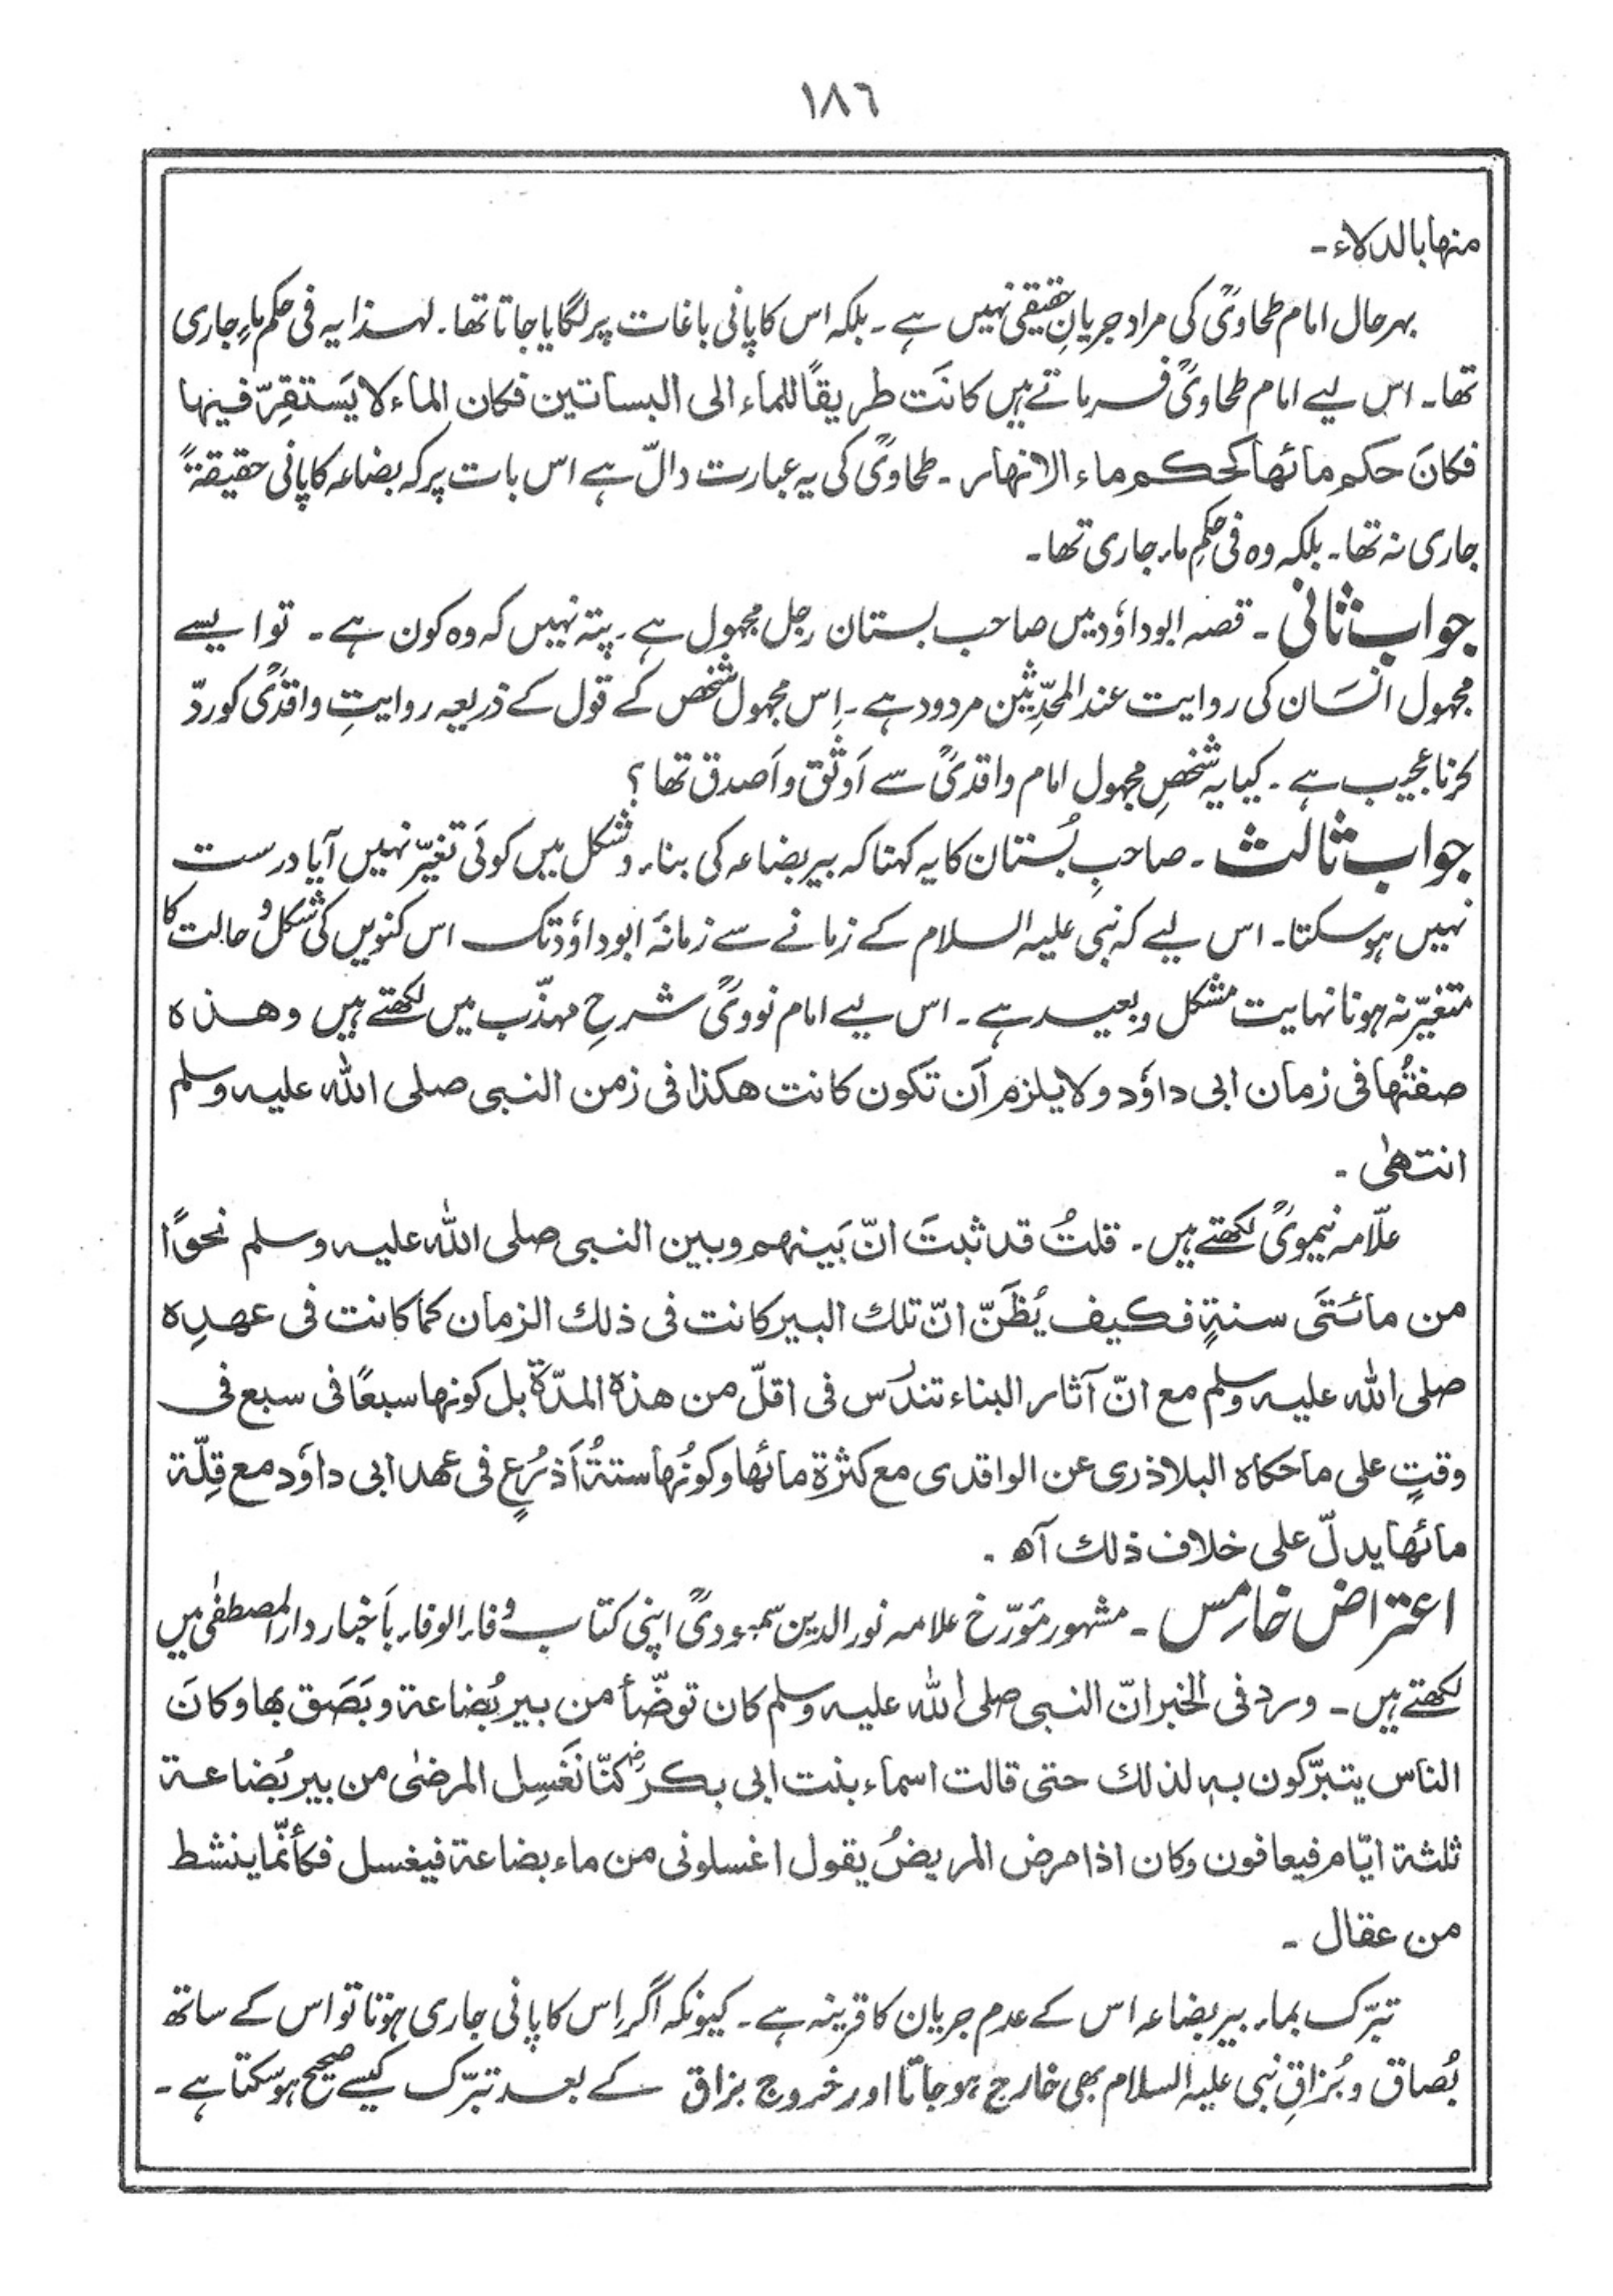 ١٨٦
منها بالدلاء ۔
بہرحال امام طحاویؒ کی مراد جریانِ حقیقی نہیں ہے ۔ بلکہ اس کا پانی باغات پر لگایا جاتا تھا ۔ لہٰذا یہ فی حکم ماءِ جاری
تھا ۔ اس لیے امام طحاویؒ فرماتے ہیں کانَت طریقًا للماء الی البساتین فکان الماء لا یَستقِرّ فیہا
فکانَ حکم مائھا کحکم ماء الانھار ۔ طحاویؒ کی یہ عبارت دالّ ہے اس بات پر کہ بضاعہ کا پانی حقیقۃً
جاری نہ تھا ۔ بلکہ وہ فی حکمِ ماء جاری تھا ۔
جواب ثانی ۔ قصہ ابوداؤد میں صاحب بستان رجل مجہول ہے ۔ پتہ نہیں کہ وہ کون ہے ۔ تو ایسے
مجہول انسَان کی روایت عند المحدّثین مردود ہے ۔ اِس مجہول شخص کے قول کے ذریعہ روایتِ واقدیؒ کو ردّ
کرنا عجیب ہے ۔ کیا یہ شخصِ مجہول امام واقدیؒ سے اَوثق و اَصدق تھا ؟
جواب ثالث ۔ صاحبِ بُستان کا یہ کہنا کہ بیر بضاعہ کی بناء و شکل میں کوئی تغیّر نہیں آیا درست
نہیں ہو سکتا ۔ اس لیے کہ نبی علیہ السلام کے زمانے سے زمانۂ ابوداؤد تک اس کنویں کی شکل و حالت کا
متغیّر نہ ہونا نہایت مشکل و بعید ہے ۔ اس لیے امام نوویؒ شرحِ مہذّب میں لکھتے ہیں وھذہ
صفتُها فی زمان ابی داؤد ولا یلزم اَن تکون کانت ھکذا فی زمن النبی صلی اللہ علیہ وسلم
انتھیٰ ۔
علّامہ نیمویؒ لکھتے ہیں ۔ قلتُ قد ثبتَ انّ بَینھم وبین النبی صلی اللہ علیہ وسلم نحوًا
من مائتَی سنةٍ فکیف یُظَنّ انّ تلك البیر کانت فی ذلك الزمان کما کانت فی عھدِہ
صلی اللہ علیہ وسلم مع انّ آثار البناء تندرس فی اقلّ من ھذہ المدّة بل کونھا سبعًا فی سبع فی
وقتٍ علی ما حَکاہ البلاذری عن الواقدی مع کثرة مائھا وکونُها ستةُ اَذرُعٍ فی عھد ابی داوٗد مع قِلّة
مائھا یدلّ علی خلاف ذلك آھ ۔
اعتراض خامس ۔ مشہور مؤرّخ علامہ نور الدین سمہودیؒ اپنی کتاب وفاء الوفاء باَخبار دار المصطفٰی میں
لکھتے ہیں ۔ ورد فی الخبر انّ النبی صلی اللہ علیہ وسلم کان توضّأ من بیر بُضاعة وبَصَق بھا وکانَ
الناس یتبرّکون بہٖ لذلك حتی قالت اسماء بنت ابی بکرؓ کنّا نَغسِل المرضٰی من بیر بُضاعة
ثلثة ایّام فیعافون وکان اذا مرض المریضُ یقول اغسلونی من ماء بضاعة فیغسل فکأنّما ینشط
من عقال ۔
تبرّک بماء بیر بضاعہ اس کے عدم جریان کا قرینہ ہے ۔ کیونکہ اگر اِس کا پانی جاری ہوتا تو اس کے ساتھ
بُصاق و بُزاقِ نبی علیہ السلام بھی خارج ہو جاتا اور خروج بزاق کے بعد تبرّک کیسے صحیح ہو سکتا ہے ۔